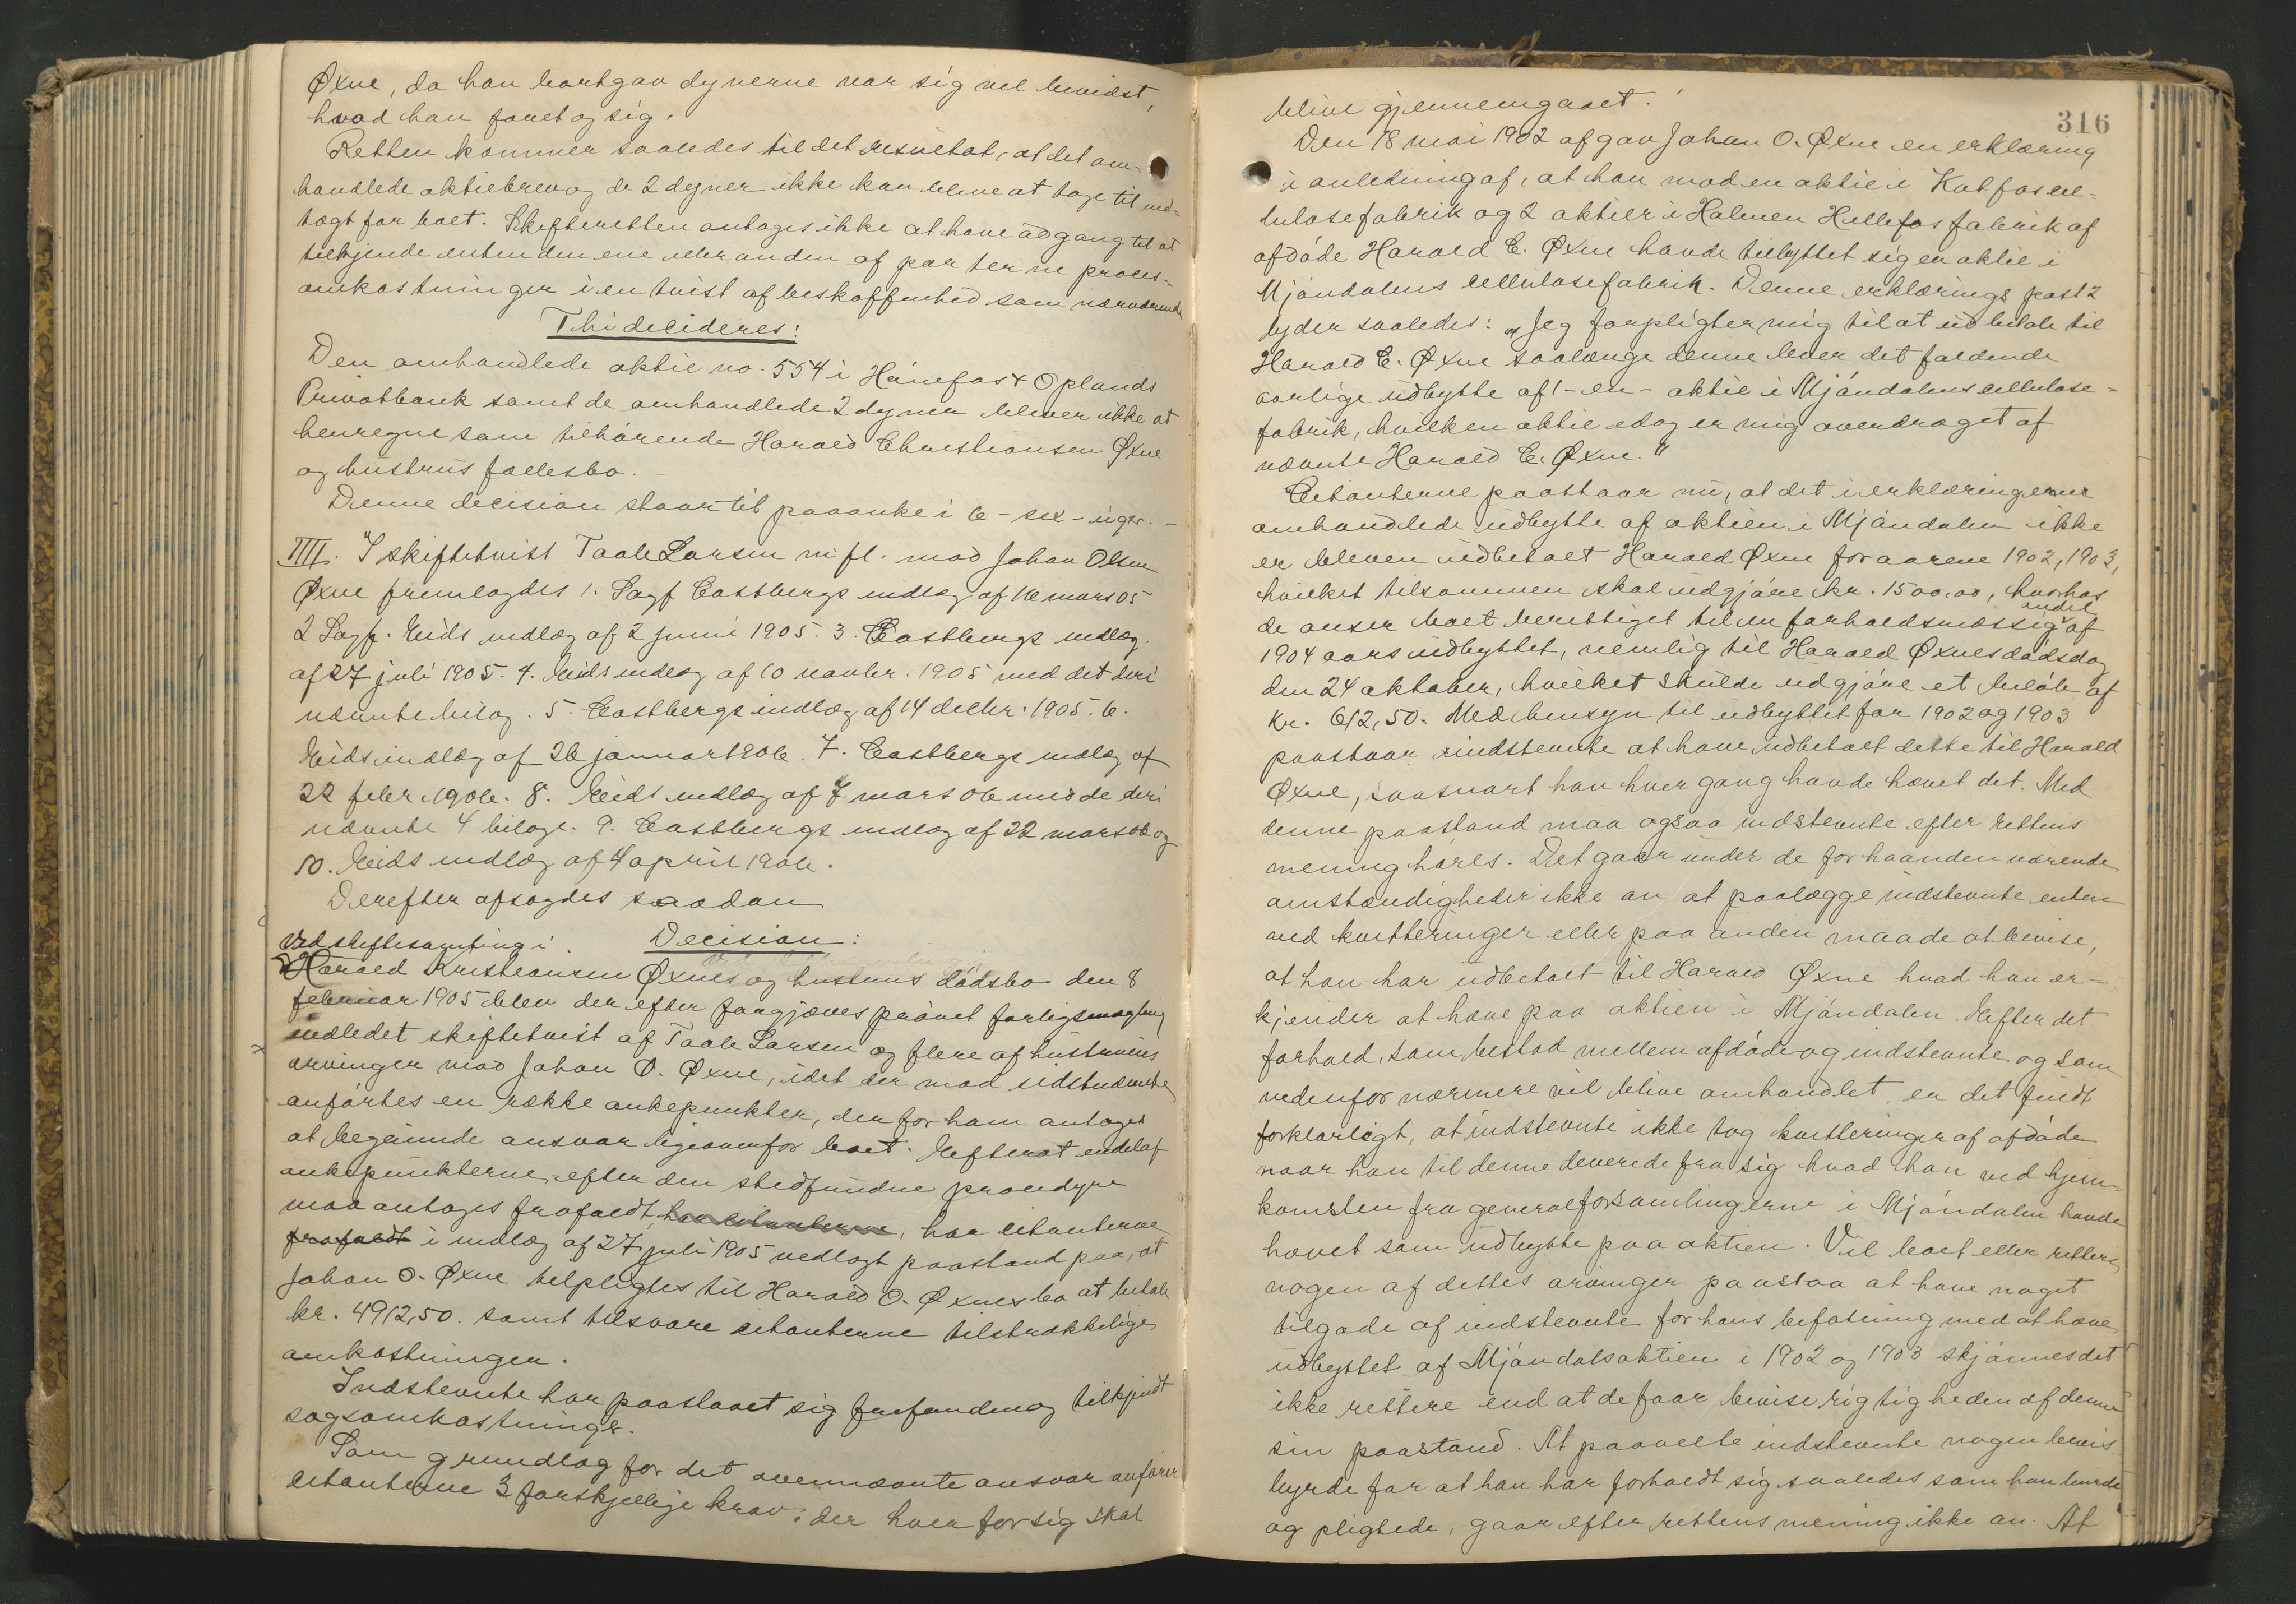 Øxne, da han bortgav dynerne var sig vel bevidst,
hvad han foretog sig.
Retten kommer saaledes til det resultat, at det om-
handlede aktiebrev og de 2 dyner ikke kan blive at tage til ind-
tægt for boet. Skifteretten antages ikke at have adgang til at
tilkjende enten den ene eller anden af parterne proces-
omkostninger i en tvist af beskaffenhed som nærværende
Thi decideres:
Den omhandlede aktie no. 554 i Hønefos & Oplands
Privatbank samt de omhandlede 2 dyner bliver ikke at
henregne som tilhørende Harald Christiansen Øxne
og hustrus fællesbo.
Denne decision staar til paaanke i 6 - sex - uger. -
IIII. I skiftetvist Taale Larsen m fl. mod Johan Olsen
Øxne fremlagdes 1. Sagf Castbergs indlæg af 16 mars 05
2 Sagf. Eids indlæg af 2 juni 1905. 3. Castbergs indlæg
af 27 juli 1905. 4. Eids indlæg af 10 novbr. 1905 med det deri
nævnte bilag. 5. Castbergs indlæg af 14 decbr. 1905. 6.
Eids indlæg af 26 januar 1906. 7. Castbergs indlæg af
22 febr. 1906. 8. Eids indlæg af 7 mars 06 med de deri
nævnte 4 bilage. 9. Castbergs indlæg af 22 mars 06 og
10. Eids indlæg af 4 april 1906.
Derefter afsagdes saadan
Decision:
Ved skiftesamling i
Harald Kristiansen Øxnes og hustrus dødsbo den 8
februar 1905 blev der efter forgjæves prøvet forligsmægling
indledet skiftetvist af Taale Larsen og flere af hustruens
arvinger mod Johan O. Øxne, idet der mod sidstnævnte
anførtes en række ankepunkter, der for ham antoges
at begrunde ansvar ligeoverfor boet. Efterat endel af
ankepunkterne efter den stedfundne procedyre
maa antages frafaldt, har citanterne, har citanterne
frafaldt i indlæg af 27 juli 1905 nedlagt paastand paa, at
Johan O. Øxne tilpligtes til Harald O. Øxnes bo at betale
kr. 4912,50. samt tilsvare citanterne tilstrækkelige
omkostninger.
Indstevnte har paastaaet sig frifunden og tilkjendt
sagsomkostninger.
Som grundlag for det ovennævnte ansvar anfører
citanterne 3 forskjellige krav, der hver for sig skal
316
blive gjennemgaaet.
Den 18 mai 1902 afgav Johan O. Øxne en erklæring
i anledning af, at han mod en aktie i Katfos cel-
lulosefabrik og 2 aktier i Holmen Hellefos fabrik af
afdøde Harald C. Øxne havde tilbyttet sig en aktie i
Mjøndalens cellulosefabrik. Denne erklærings post 2
lyder saaledes: "Jeg forpligter mig til at udbetale til
Harald C. Øxne saalænge denne lever det faldende
aarlige udbytte af 1 - en - aktie i Mjøndalens cellulose-
fabrik, hvilken aktie idag er mig overdraget af
nævnte Harald C. Øxne."
Citanterne paastaar nu, at det i erklæringerne
omhandlede udbytte af aktien i Mjøndalen ikke
er bleven udbetalt Harald Øxne for aarene 1902, 1903,
hvilket tilsammen skal udgjøre kr. 1500.00, hvorhos
de anser boet berettiget til en forholdsmæssig andel af
1904 aars udbyttet, nemlig til Harald Øxnes dødsdag
den 24 oktober, hvilket skulde udgjøre et beløb af
Kr. 612,50. Med hensyn til udbyttet for 1902 og 1903
paastaar indstevnte at have udbetalt dette til Harald
Øxne, saasnart han hver gang havde hævet det. Med
denne paastand maa ogsaa indstevnte efter rettens
mening høres. Det gaar under de forhaanden værende
omstændigheder ikke an at paalægge indstevnte enten
ved kvitteringer eller paa anden maade at bevise,
at han har udbetalt til Harald Øxne hvad han er-
kjender at hæve paa aktien i Mjøndalen. Efter det
forhold, som bestod mellem afdøde og indstevnte og som
nedenfor nærmere vil blive omhandlet, er det fuldt
forklarligt, at indstevnte ikke tog kvitteringer af afdøde
naar han til denne leverede fra sig hvad han ved hjem-
komsten fra generalforsamlingerne i Mjøndalen havde
hævet som udbytte paa aktien. Vil boet eller rettere
nogen af dettes arvinger paastaa at have noget
tilgode af indstevnte for hans befatning med at hæve
udbyttet af Mjøndalsaktien i 1902 og 1903 skjønnes det
ikke rettere end at de faar bevise rigtigheden af denne
sin paastand. At paavelte indstevnte nogen bevis
byrde for at han har forholdt sig saaledes som han burde
og pligtede, gaar efter rettens mening ikke an. At